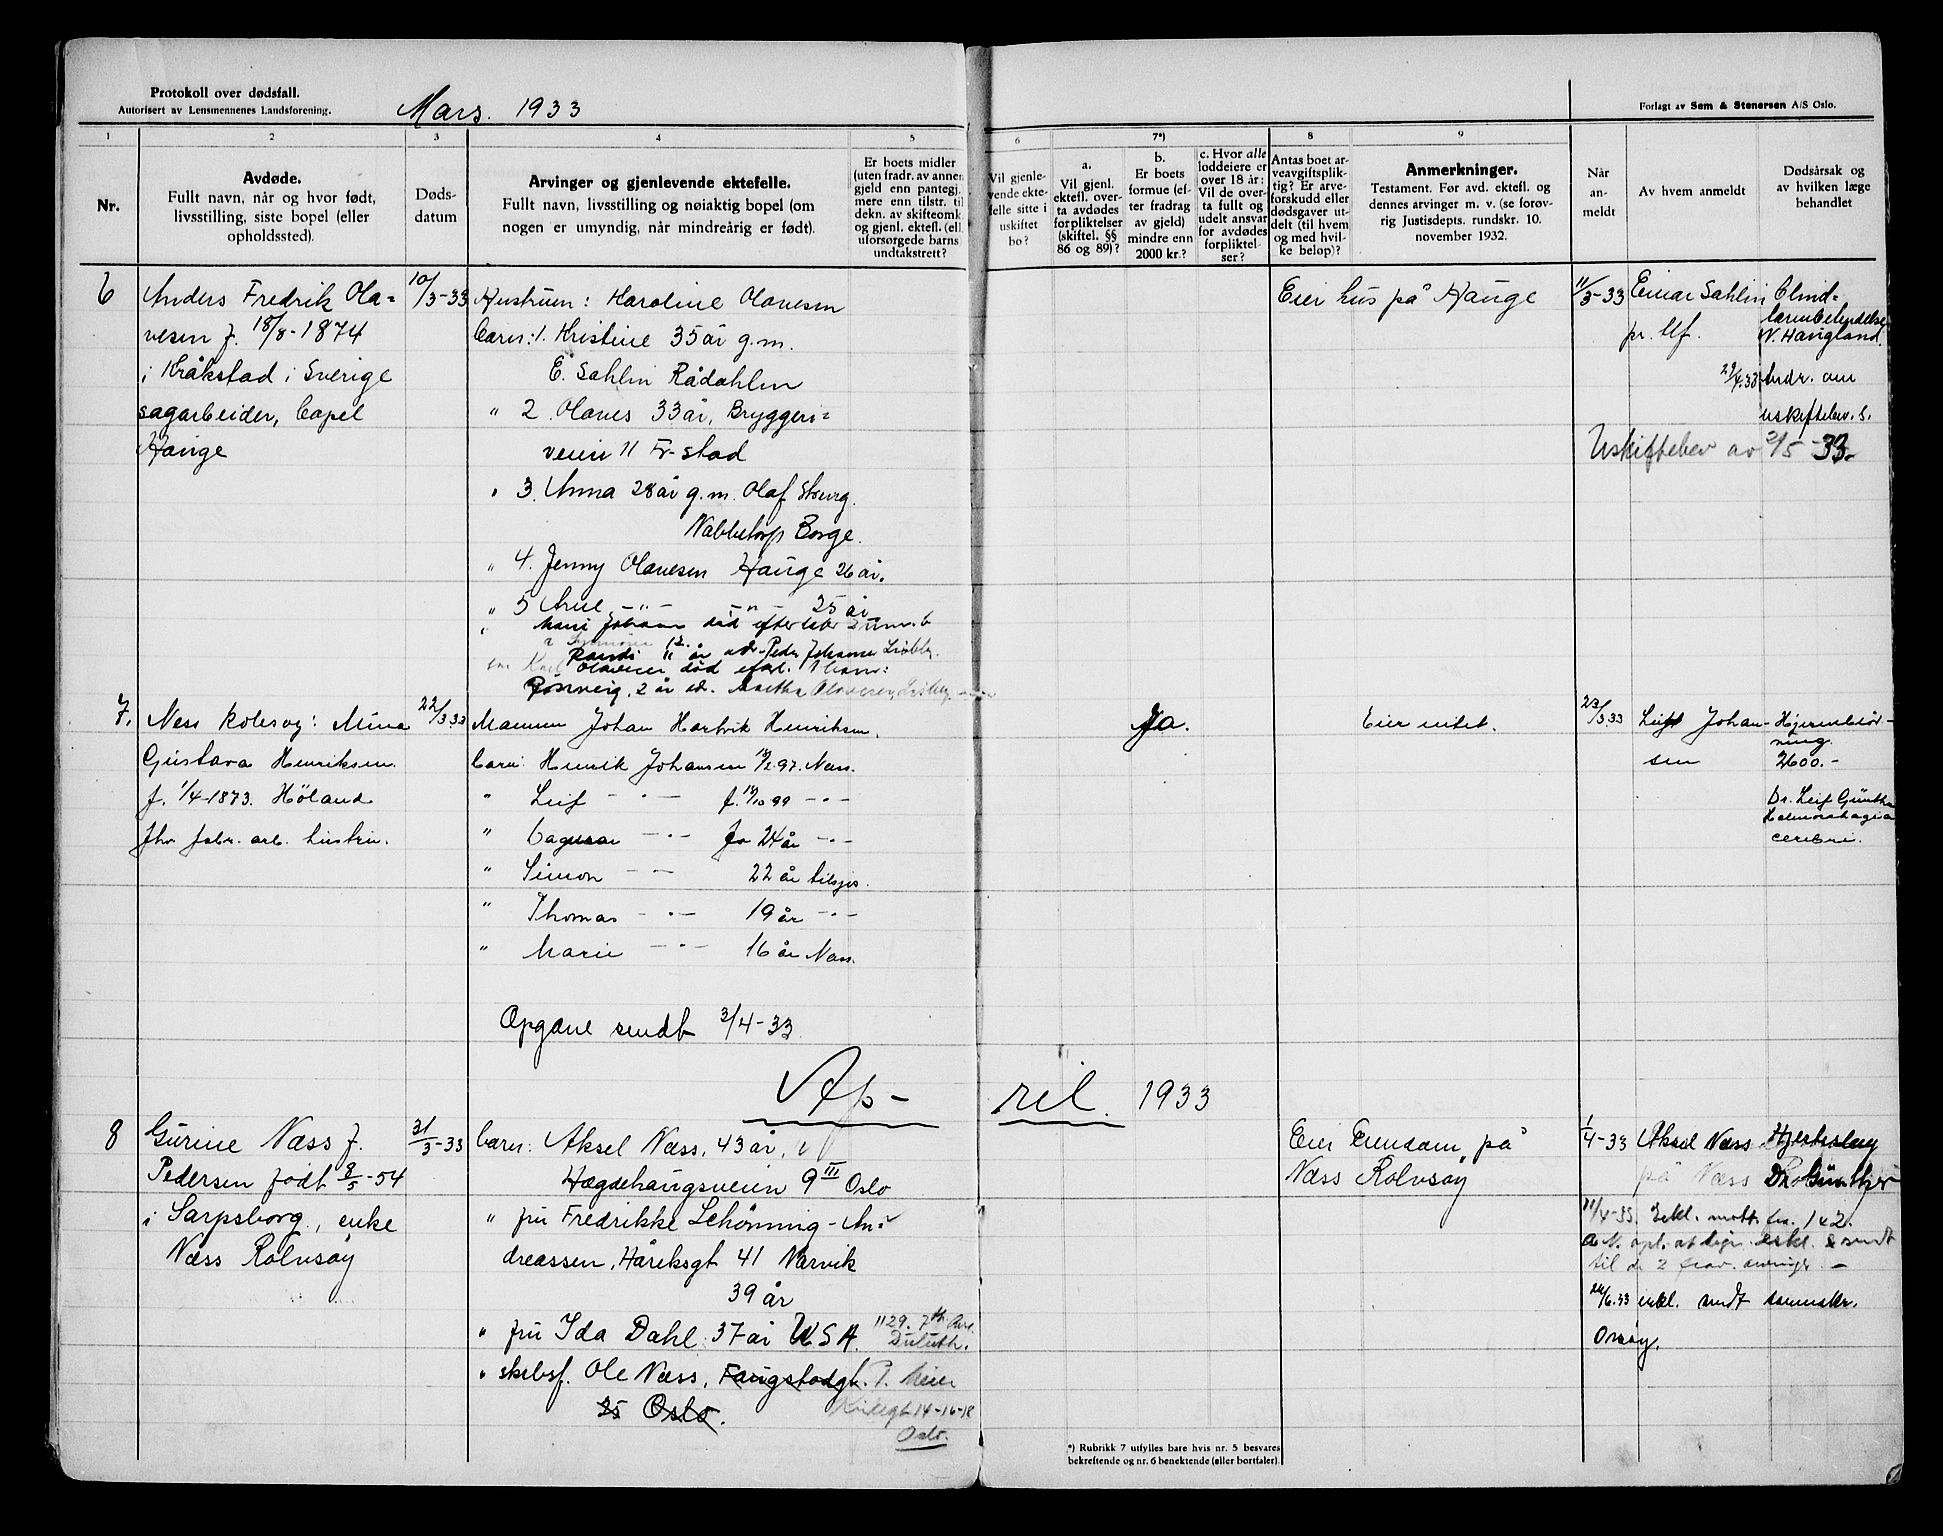 Protokoll over dødsfall.
Autorisert av Lensmennenes Landsforening.
Mars. 1933
Forlagt av Sem & Stenersen A/S Oslo.
1
2
3
4
5
6
7*)
8
9
Nr.
Avdøde.
Fullt navn, når og hvor født,
livsstilling, siste bopel (eller
opholdssted).
Døds-
datum
Arvinger og gjenlevende ektefelle.
Fullt navn, livsstilling og nøiaktig bopel (om
nogen er umyndig, når mindreårig er født).
Er boets midler
(uten fradr. av annen
gjeld enn pantegj.
mere enn tilstr. til
dekn. av skifteomk.
og gjenl. ektef. (ell.
uforsørgede barns)
undtakstrett?
Vil gjenle-
vende ekte-
felle sitte i
uskiftet
bo?
a.
Vil gjenl.
ektefl. over-
ta avdødes
forpliktelser
(skiftel. §§
86 og 89)?
b.
Er boets
formue (ef-
ter fradrag
av gjeld)
mindre enn
2000 kr.?
c. Hvor alle
loddeiere er
over 18 år:
Vil de over-
ta fullt og
udelt ansvar
for avdødes
forpliktel-
ser?
Antas boet ar-
veavgiftsplik-
tig? Er arve-
forskudd eller
dødsgaver ut-
delt (til hvem
og med hvil-
ke beløp)?
Anmerkninger.
Testament. Før avd. ektefl. og
dennes arvinger m. v. (se forøv-
rig Justisdepts. rundskr. 10.
november 1932.
Når
an-
meldt
Av hvem anmeldt
Dødsårsak og
av hvilken læge
behandlet
6
Anders Fredrik Ola-
vesen f. 18/8-1874
i Kråkstad i Sverige
sagarbeider, bopel
Hauge
10/3-33
Hustruen: Karoline Olavesen
barn: 1. Kristine 35 år g.m.
E. Sahlin Rådahlen
" 2. Olaves 33 år, Bryggeri-
veien 11 Fr-stad
" 3. Anna 28 år g.m. Olaf
Nabbetorp Borge.
" 4. Jenny Olavesen Hauge 26 år.
" 5 -"- -"- 25 år
Johansen død efterlater
Randi 11 år adr. Peder Johansen
Olavesen død efterl. 1 barn:
2 år ad. Olavesen
Eier hus på Hauge
11/3-33
Einar Sahlin
pr. tlf.
Blind-
tarmbetendelse
N. Haugland.
29/4.33 Andr. om
uskiftebev. s.
Uskiftebev av 2/5-33.
7.
Ness Rolvsøy: Mina
Gustava Henriksen.
f. 1/4-1873. Høland
fhv fabr. arb. hustru.
22/3.33
Mannen Johan Hartvik Henriksen.
barn: Henrik Johansen 19/2.97. Næss.
" Leif -"- f. 19/10 99 -"-
" Ragnar -"- 24 år -"-
" Simon -"- 22 år tilsjøs.
" Thomas -"- 19 år -"-
" Marie -"- 16 år Næss.
Opgave sendt 3/4-33
Ja.
Eier intet.
23/3.33
Leif Johan-
sen
Hjerneblød-
ning.
2600.-
Dr. Leif Günther
Hæmorrhagia
cerebri.
Ap-
ril. 1933
8
Gurine Næss f.
Pedersen født 8/5-54
i Sarpsborg, enke
Næss Rolvsøy
31/3-33
barn: Aksel Næss, 43 år,
Hægdehaugsveien 9 III Oslo
" fru Fredrikke Schønning-An-
dreassen, Håreksgt 41 Narvik
39 år
" fru Ida Dahl 37 år USA.
1129. 7th Ave.
Duluth.
" skibsf. Ole Næss, Faugstadgt.
25 Oslo.
14-16-18
Oslo.
Eier Eiendom på
Næss Rolvsøy
1/4-33
Aksel Næss
på Næss
Hjerteslag
Dr. Günther
11/4-33. Erkl. mott. fra 1 & 2.
til de 2 frav. arvinger. -
24/6.33 erkl. sendt sorenskr.
Onsøy.
*) Rubrikk 7 utfylles bare hvis nr. 5 besvares
bekreftende og nr. 6 benektende (eller bortfaler).